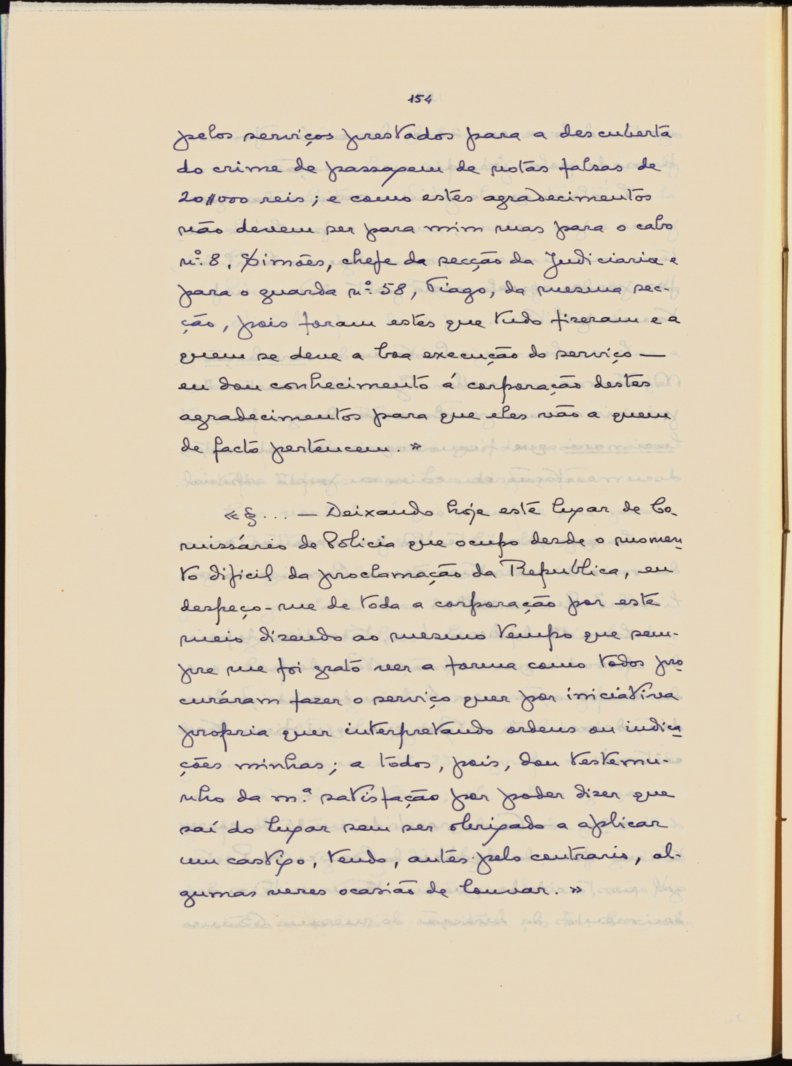 154
pelos serviços prestados para a descuberta
do crime de passagem de notas falsas de
20$000 reis; e como estes agradecimentos
não devem ser para mim mas para o cabo
n.º 8, Simões, chefe da secção da Judiciaria e
para o guarda n.º 58, Tiago, da mesma sec-
ção, pois foram estes que tudo fizeram e a
quem se deve a boa execução do serviço —
eu dou conhecimento á corporação destes
agradecimentos para que eles vão a quem
de facto pertencem. »
« § ... — Deixando hoje este lugar de Co-
missário de Policia que ocupo desde o momen-
to dificil da proclamação da Republica, eu
despeço-me de toda a corporação por este
meio dizendo ao mesmo tempo que sem-
pre me foi grato ver a forma como todos pro-
curáram fazer o serviço quer por iniciativa
propria quer interpretando ordens ou indica-
ções minhas; a todos, pois, dou testemu-
nho da m.ª satisfação por poder dizer que
saí do lugar sem ser obrigado a aplicar
um castigo, tendo, antes pelo contrario, al-
gumas vezes ocasião de louvar. »